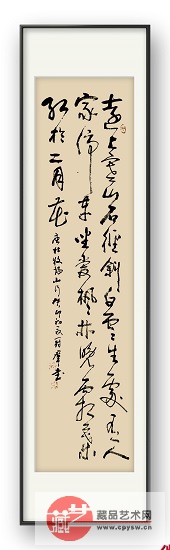 远上寒山石径斜白云生处有人
家停车坐爱枫林晚霜叶
红于二月花
唐杜牧诗山行
藏品艺术网
www.cpysw.cn